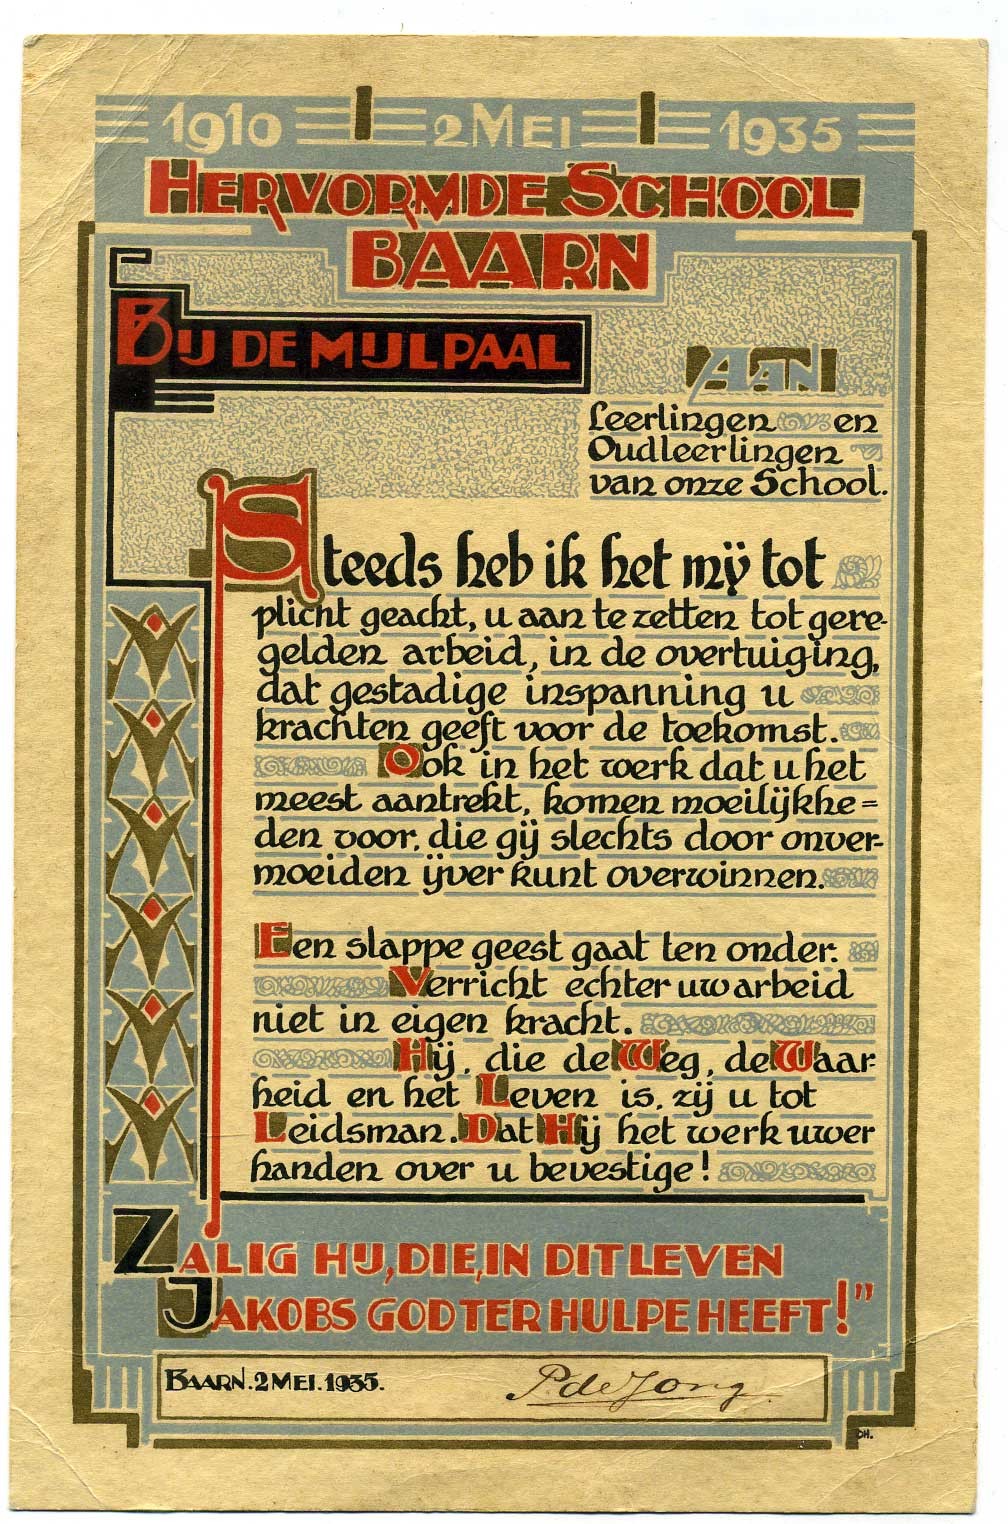 1910 2 MEI 1935
HERVORMDE SCHOOL
BAARN
BIJ DE MIJLPAAL
AAN
Leerlingen en
Oudleerlingen
van onze School.
Steeds heb ik het mÿ tot
plicht geacht, u aan te zetten tot gere-
gelden arbeid, in de overtuiging,
dat gestadige inspanning u
krachten geeft voor de toekomst.
Ook in het werk dat u het
meest aantrekt, komen moeilijkhe=
den voor, die gij slechts door onver-
moeiden ijver kunt overwinnen.
Een slappe geest gaat ten onder.
Verricht echter uw arbeid
niet in eigen kracht.
Hij, die de Weg, de Waar-
heid en het Leven is, zij u tot
Leidsman. Dat Hij het werk uwer
handen over u bevestige!
ZALIG HIJ, DIE, IN DIT LEVEN
JAKOBS GOD TER HULPE HEEFT!"
BAARN. 2 MEI. 1935. P. de Jong
CH.